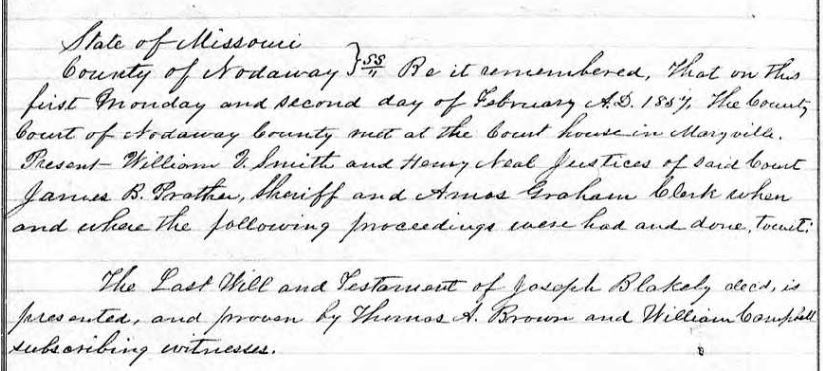 State of Missouri
County of Nodaway } SS Be it remembered, That on this
first Monday and second day of February A.D. 1857, The County
Court of Nodaway County met at the Court house in Maryville.
Present William V. Smith and Henry Neal Justices of said Court
James B. Prather, Sheriff and Amos Graham Clerk when
and where the following proceedings were had and done, towit:
The Last Will and Testament of Joseph Blakely decd, is
presented, and proven by Thomas A. Brown and William Campbell
subscribing witnesses.